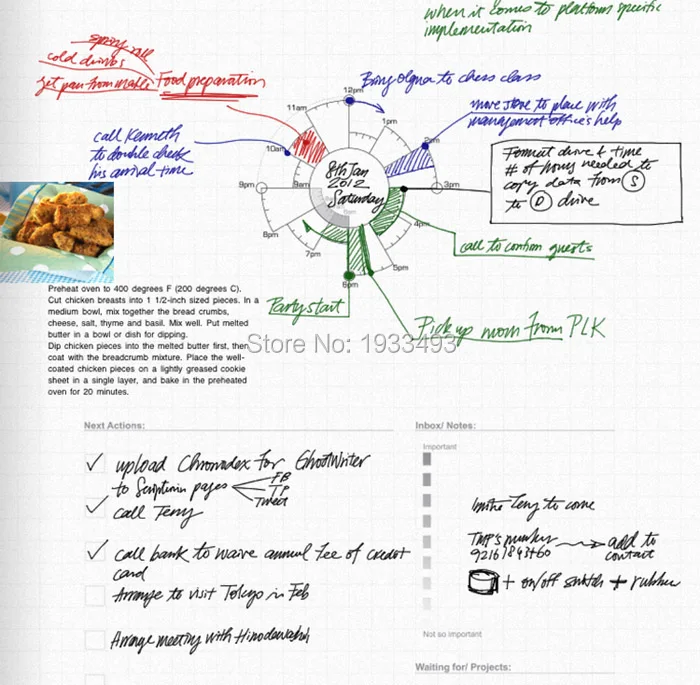 when it comes to platform specific
implementation
spring roll
cold drinks
get pan from
Food preparation
Bring Olgna to chess class
12pm
11am
1pm
call Kenneth
to double check
his arrival time
move stove to place with
management office's help
10am
2pm
Format drive & time
# of hours needed to
copy data from S
to D drive
8th Jan
2012
Saturday
9pm
9am
3pm
8pm
4pm
7pm
call to confirm guests
5pm
6pm
Party start
Pick up mom from PLK
Preheat oven to 400 degrees F (200 degrees C).
Cut chicken breasts into 1 1/2-inch sized pieces. In a
medium bowl, mix together the bread crumbs,
cheese, salt, thyme and basil. Mix well. Put melted
butter in a bowl or dish for dipping.
Dip chicken pieces into the melted butter first, then
coat with the breadcrumb mixture. Place the well-
coated chicken pieces on a lightly greased cookie
sheet in a single layer, and bake in the preheated
oven for 20 minutes.
Store No: 1933493
Next Actions:
upload Chronodex for GhostWriter
to pages
FB
TP
Tweet
call Terry
call bank to waive annual fee of credit
card
Arrange to visit Tokyo in Feb
Arrange meeting with
Inbox/ Notes:
Important
to come
number
add to
contact
+ on/off switch + rubber
Not so important
Waiting for/ Projects: